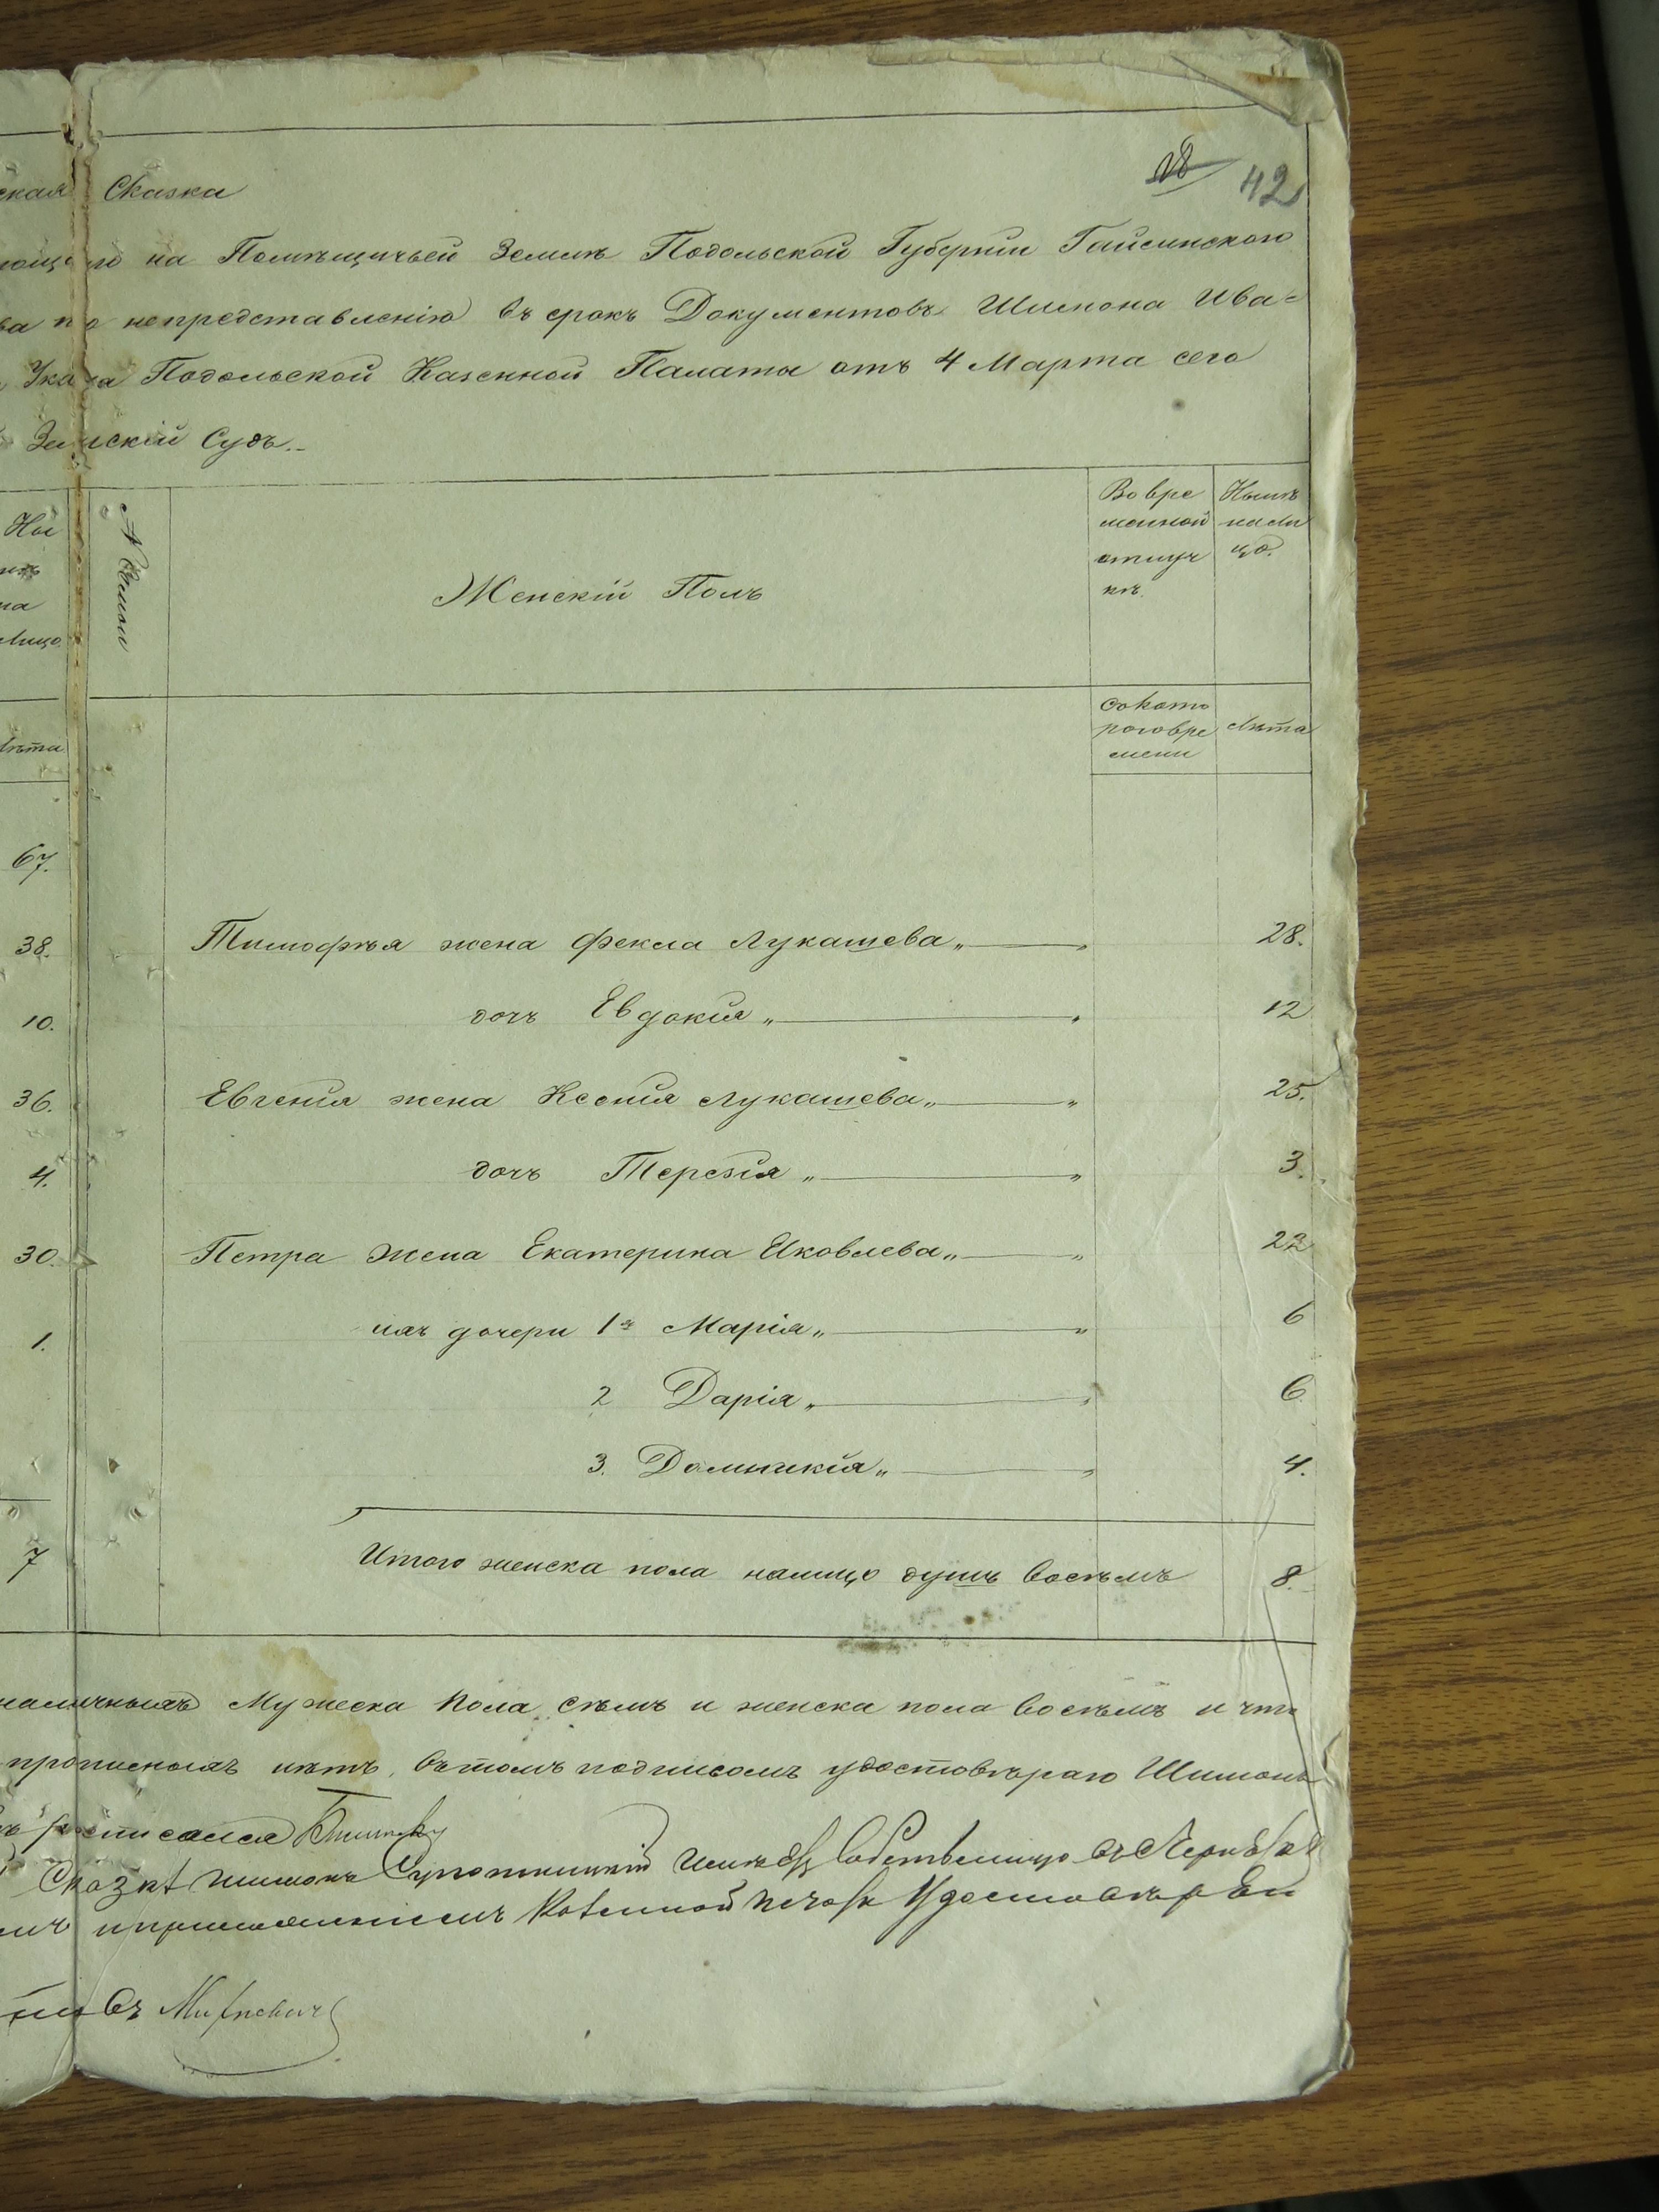 ская Сказка
42
на Помѣщичьей Землѣ Подольской Губерніи Гайсинского
ва по непредставленію въ срокъ Документовъ Шимона Ива=
Указа Подольской Казенной Палаты отъ 4 Марта сего
Земскій Судъ.
Ны
нѣ
на
лицо
№ Семьи
Женскій Полъ
Во вре
менной
отлуч
кѣ.
Нынѣ
на ли
цо.
лѣта
Съ кото
раго вре
мени
лѣта
67.
38. Тимофѣя жена Фекла Лукашева„ 28.
10. дочь Евдокія„ 12
36. Евгенія жена Ксенія Лукашева„ 25.
4. дочь Терезія„ 3.
30. Петра жена Екатерина Яковлева„ 22
1. ихъ дочери 1я Марія„ 6
2 Дарія„ 6
3. Доминикія„ 4.
7 Итого женска пола налицо душъ восѣмъ 8.
наличныхъ Мужеска пола сѣмъ и женска пола восѣмъ и что
прописныхъ нѣтъ, въ томъ подписомъ удостовѣраю Шимонъ
Сказкѣ Шимонъ
печать удостовѣраемъ